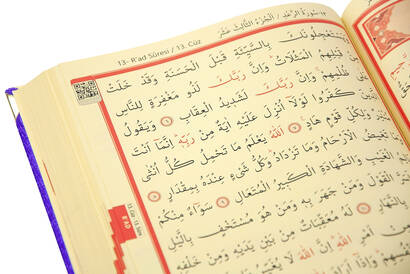 13- R'ad Sûresi / 13. Cüz
١٣-سُورَةُ الرَّعْدِ / اَلْجُزْءُ الثَّالِثَ عَشَرَ
وَيَسْتَعْجِلُونَكَ بِالسَّيِّئَةِ قَبْلَ الْحَسَنَةِ وَقَدْ خَلَتْ
قَبْلِهِمُ الْمَثُلَاتُ وَاِنَّ رَبَّكَ لَذُو مَغْفِرَةٍ لِلنَّاسِ
ظُلْمِهِمْ وَاِنَّ رَبَّكَ لَشَدِيدُ الْعِقَابِ ٦ وَيَقُولُ
كَفَرُوا لَوْلَا اُنْزِلَ عَلَيْهِ اٰيَةٌ مِنْ رَبِّهِ اِنَّمَا اَنْتَ
وَلِكُلِّ قَوْمٍ هَادٍ ٧ اَللّٰهُ يَعْلَمُ مَا تَحْمِلُ كُلُّ اُنْثٰى
تَغِيضُ الْاَرْحَامُ وَمَا تَزْدَادُ وَكُلُّ شَيْءٍ عِنْدَهُ بِمِقْدَارٍ ٨
الْغَيْبِ وَالشَّهَادَةِ الْكَبِيرُ الْمُتَعَالِ ٩ سَوَاءٌ مِنْكُمْ
الْقَوْلَ وَمَنْ جَهَرَ بِهِ وَمَنْ هُوَ مُسْتَخْفٍ بِالَّيْلِ
بِالنَّهَارِ ١٠ لَهُ مُعَقِّبَاتٌ مِنْ بَيْنِ يَدَيْهِ وَمِنْ خَلْفِهِ
مِنْ اَمْرِ اللّٰهِ اِنَّ اللّٰهَ لَا يُغَيِّرُ